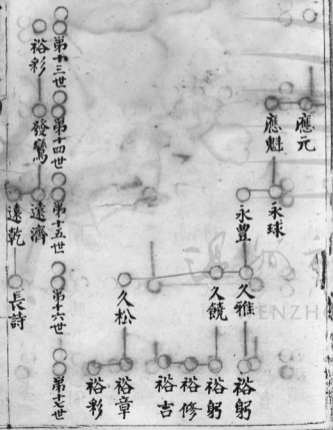 應元
應魁
永球
永豐
久雅
久饒
久松
裕躬
裕躬
裕修
裕吉
裕章
裕彩
第十三世
第十四世
第十五世
第十六世
第十七世
裕彩
發鸞
遠濟
遠乾
長詩